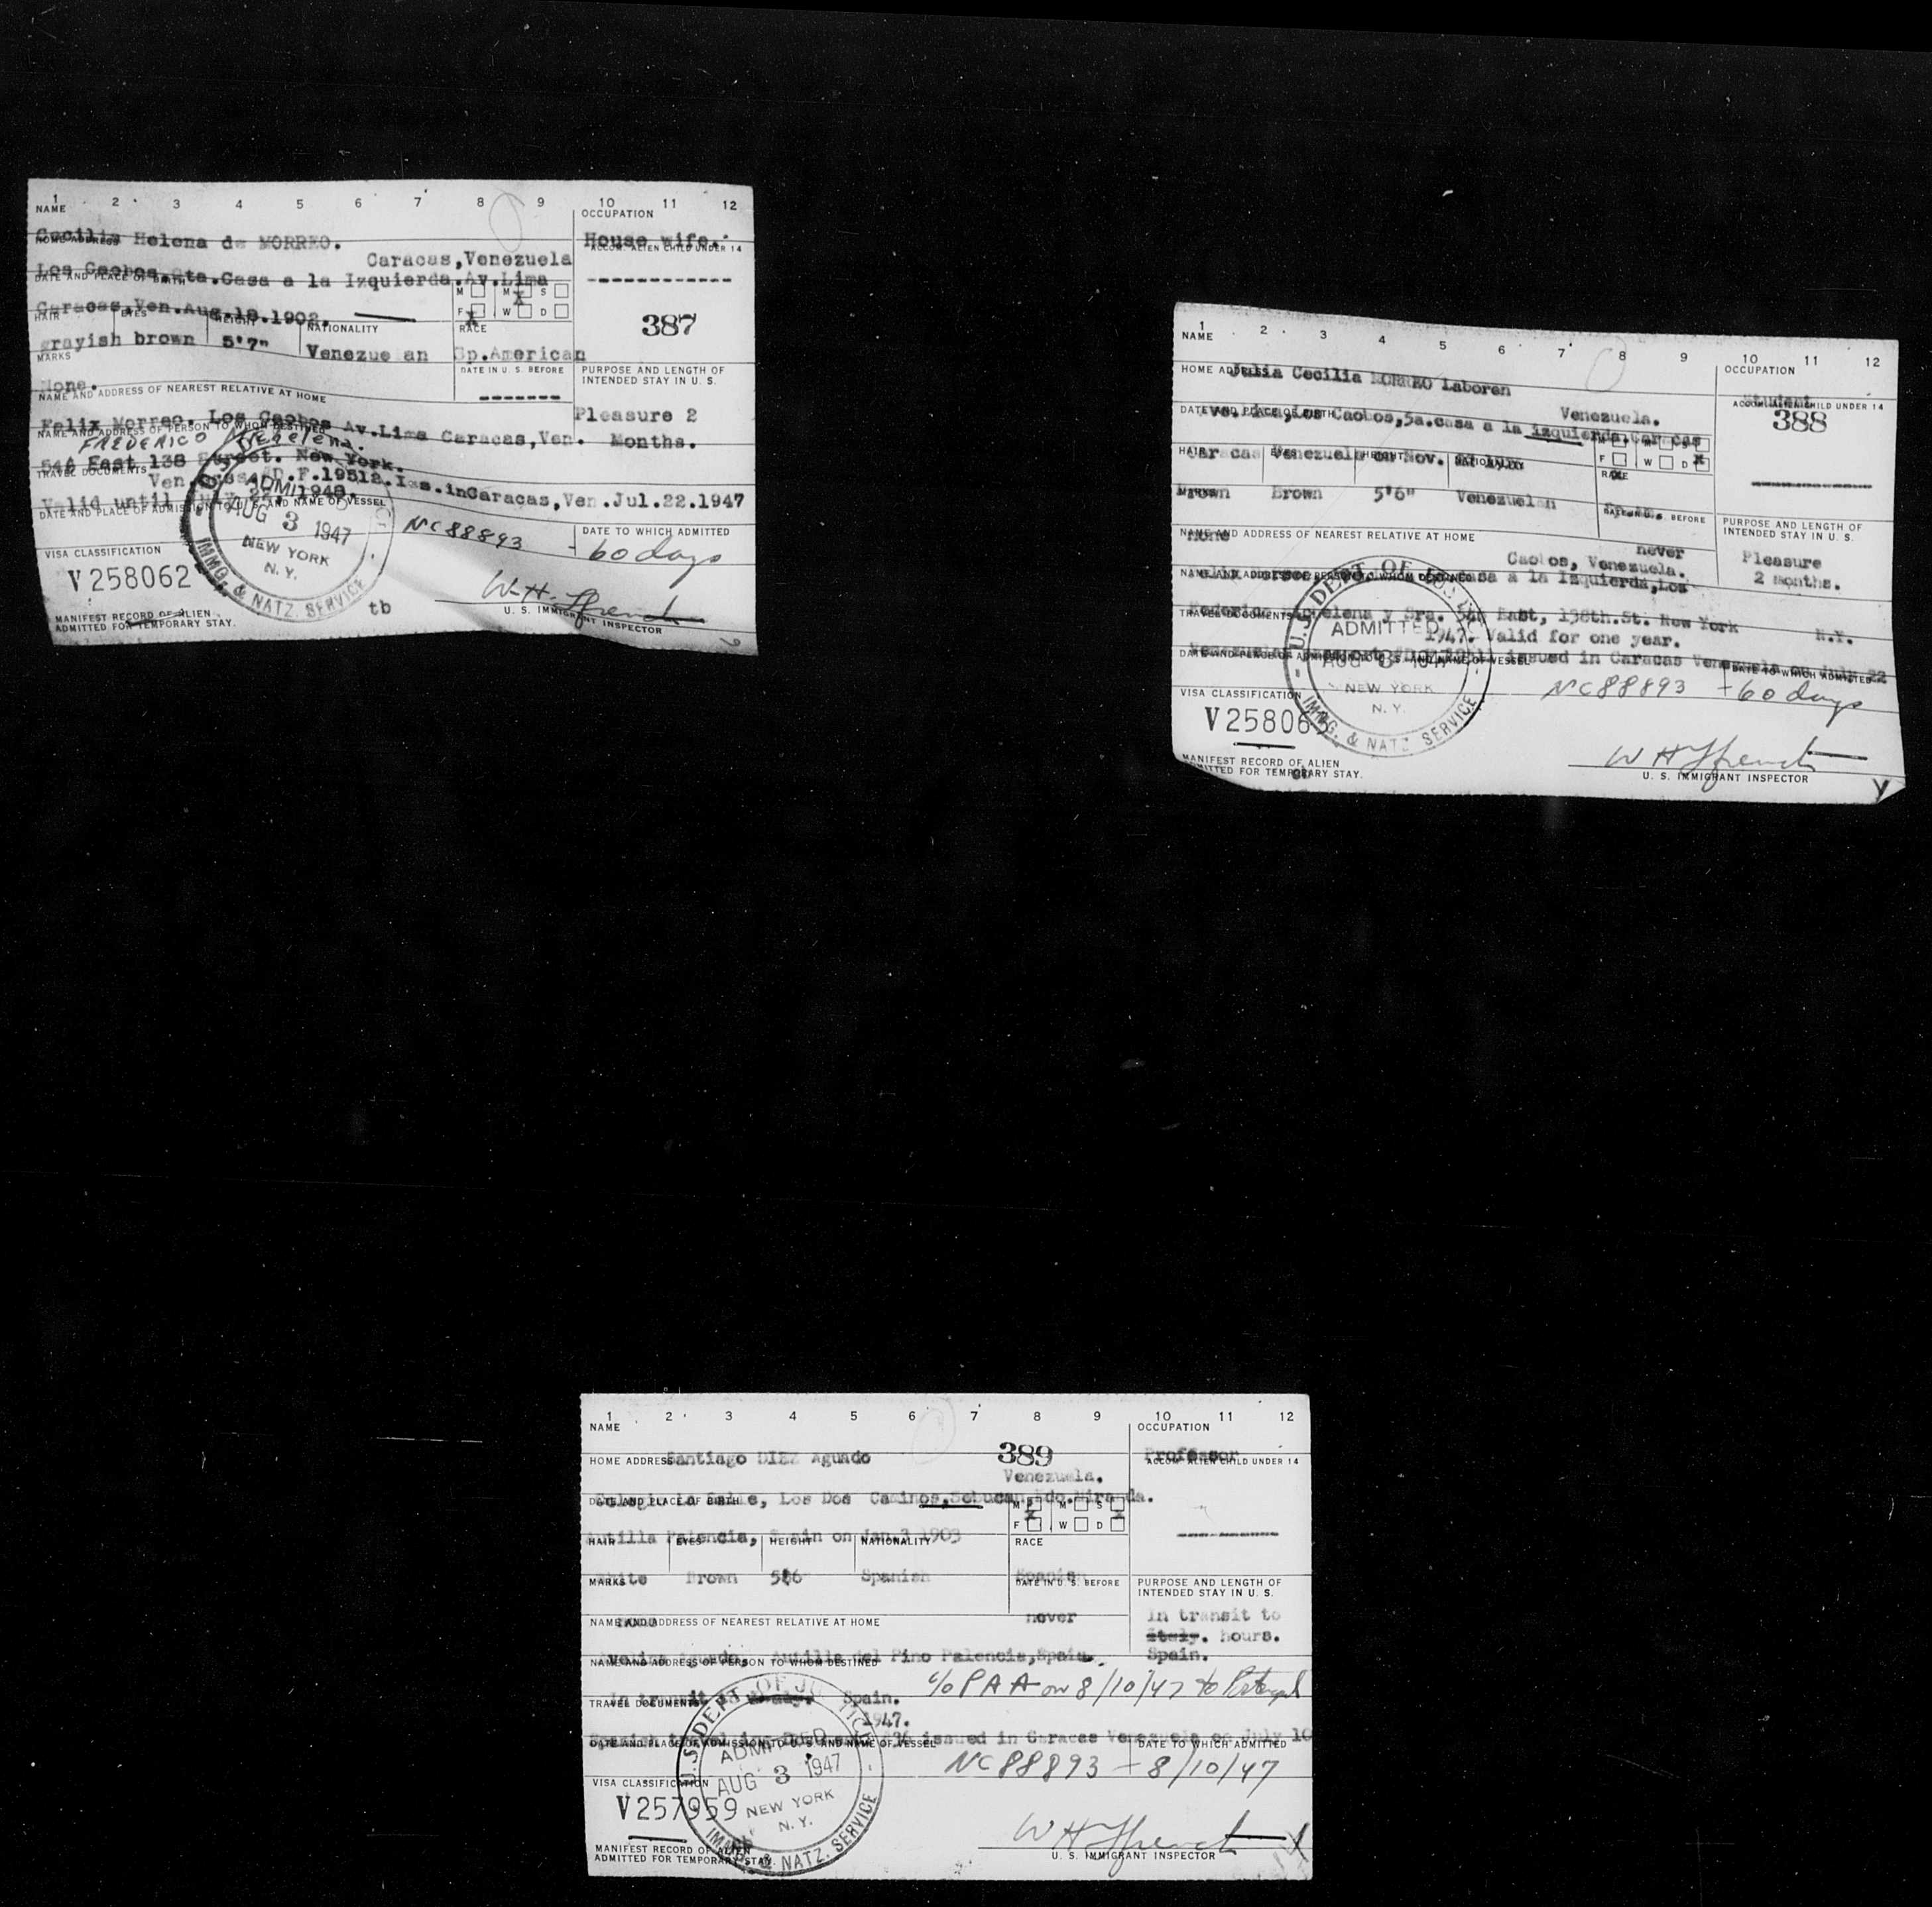 1 2 3 4 5 6 7 8 9 10 11 12
NAME OCCUPATION
Cecilia Helena de MORREO. House wife.
HOME ADDRESS ACCOM. ALIEN CHILD UNDER 14
Caracas,Venezuela
Los Caobos. Qta.Casa a la Izquierda.Av.Lima
DATE AND PLACE OF BIRTH
M M S
Caracas,Ven.Aug.18.1902. F X W D
387
HAIR EYES HEIGHT NATIONALITY RACE
grayish brown 5'7" Venezuelan Sp.American
MARKS DATE IN U. S. BEFORE PURPOSE AND LENGTH OF INTENDED STAY IN U. S.
None.
NAME AND ADDRESS OF NEAREST RELATIVE AT HOME
Pleasure 2
Felix Morreo. Los Caobos Av.Lima Caracas,Ven. Months.
NAME AND ADDRESS OF PERSON TO WHOM DESTINED
FREDERICO
546 East 138 Street. New York.
TRAVEL DOCUMENTS
Ven. D.F.19512.Iss.inCaracas,Ven.Jul.22.1947
Valid until 1948.
DATE AND PLACE OF ADMISSION TO U. S. AND NAME OF VESSEL DATE TO WHICH ADMITTED
ADMITTED
AUG 3 1947
NEW YORK
N. Y.
IMMG. & NATZ. SERVICE
NC88893 - 60 days
VISA CLASSIFICATION
V258062
tb
W.H. Ffrench
U. S. IMMIGRANT INSPECTOR
MANIFEST RECORD OF ALIEN
ADMITTED FOR TEMPORARY STAY.
1 2 3 4 5 6 7 8 9 10 11 12
NAME OCCUPATION
Julia Cecilia MORREO Laboren Student
HOME ADDRESS ACCOM. ALIEN CHILD UNDER 14
388
Venezuela.
Los Caobos,5a.casa a la izquierda Caracas
DATE AND PLACE OF BIRTH
M M S
F W D
Caracas Venezuela on Nov.
HAIR EYES HEIGHT NATIONALITY RACE
Brown Brown 5'6" Venezuelan
MARKS DATE IN U. S. BEFORE PURPOSE AND LENGTH OF INTENDED STAY IN U. S.
none
NAME AND ADDRESS OF NEAREST RELATIVE AT HOME
never Pleasure
Caobos, Venezuela. 2 months.
casa a la Izquierda,Los
NAME AND ADDRESS OF PERSON TO WHOM DESTINED
y Sra. 546 East, 138th.St. New York N.Y.
TRAVEL DOCUMENTS
1947. Valid for one year.
issued in Caracas Venezuela on July 22
DATE AND PLACE OF ADMISSION TO U. S. AND NAME OF VESSEL DATE TO WHICH ADMITTED
U. S. DEPT OF JUSTICE
ADMITTED
AUG 3 1947
NEW YORK
N. Y.
IMMG. & NATZ. SERVICE
NC88893 - 60 days
VISA CLASSIFICATION
V258063
W H Ffrench
U. S. IMMIGRANT INSPECTOR
MANIFEST RECORD OF ALIEN
ADMITTED FOR TEMPORARY STAY.
1 2 3 4 5 6 7 8 9 10 11 12
NAME OCCUPATION
389
Santiago DIEZ Aguado Professor
HOME ADDRESS ACCOM. ALIEN CHILD UNDER 14
Venezuela.
Colegio La Salle, Los Dos Caminos,Sebucan,Edo.Miranda.
DATE AND PLACE OF BIRTH
M M S
F W D
Autilla Palencia, Spain on Jan.3 1903
HAIR EYES HEIGHT NATIONALITY RACE
White Brown 5'6 Spanish Spanish
MARKS DATE IN U. S. BEFORE PURPOSE AND LENGTH OF INTENDED STAY IN U. S.
never
NAME AND ADDRESS OF NEAREST RELATIVE AT HOME
In transit to
Italy. hours.
Aguado, Autilla del Pino Palencia,Spain. Spain.
NAME AND ADDRESS OF PERSON TO WHOM DESTINED
In transit to Spain. c/o PAA on 8/10/47 to Portugal
TRAVEL DOCUMENTS
1947.
issued in Caracas Venezuela on July 10
DATE AND PLACE OF ADMISSION TO U. S. AND NAME OF VESSEL DATE TO WHICH ADMITTED
U.S. DEPT OF JUSTICE
ADMITTED
AUG 3 1947
NEW YORK
N. Y.
IMMG. & NATZ. SERVICE
NC88893 - 8/10/47
VISA CLASSIFICATION
V257959
W H Ffrench
U. S. IMMIGRANT INSPECTOR
MANIFEST RECORD OF ALIEN
ADMITTED FOR TEMPORARY STAY.